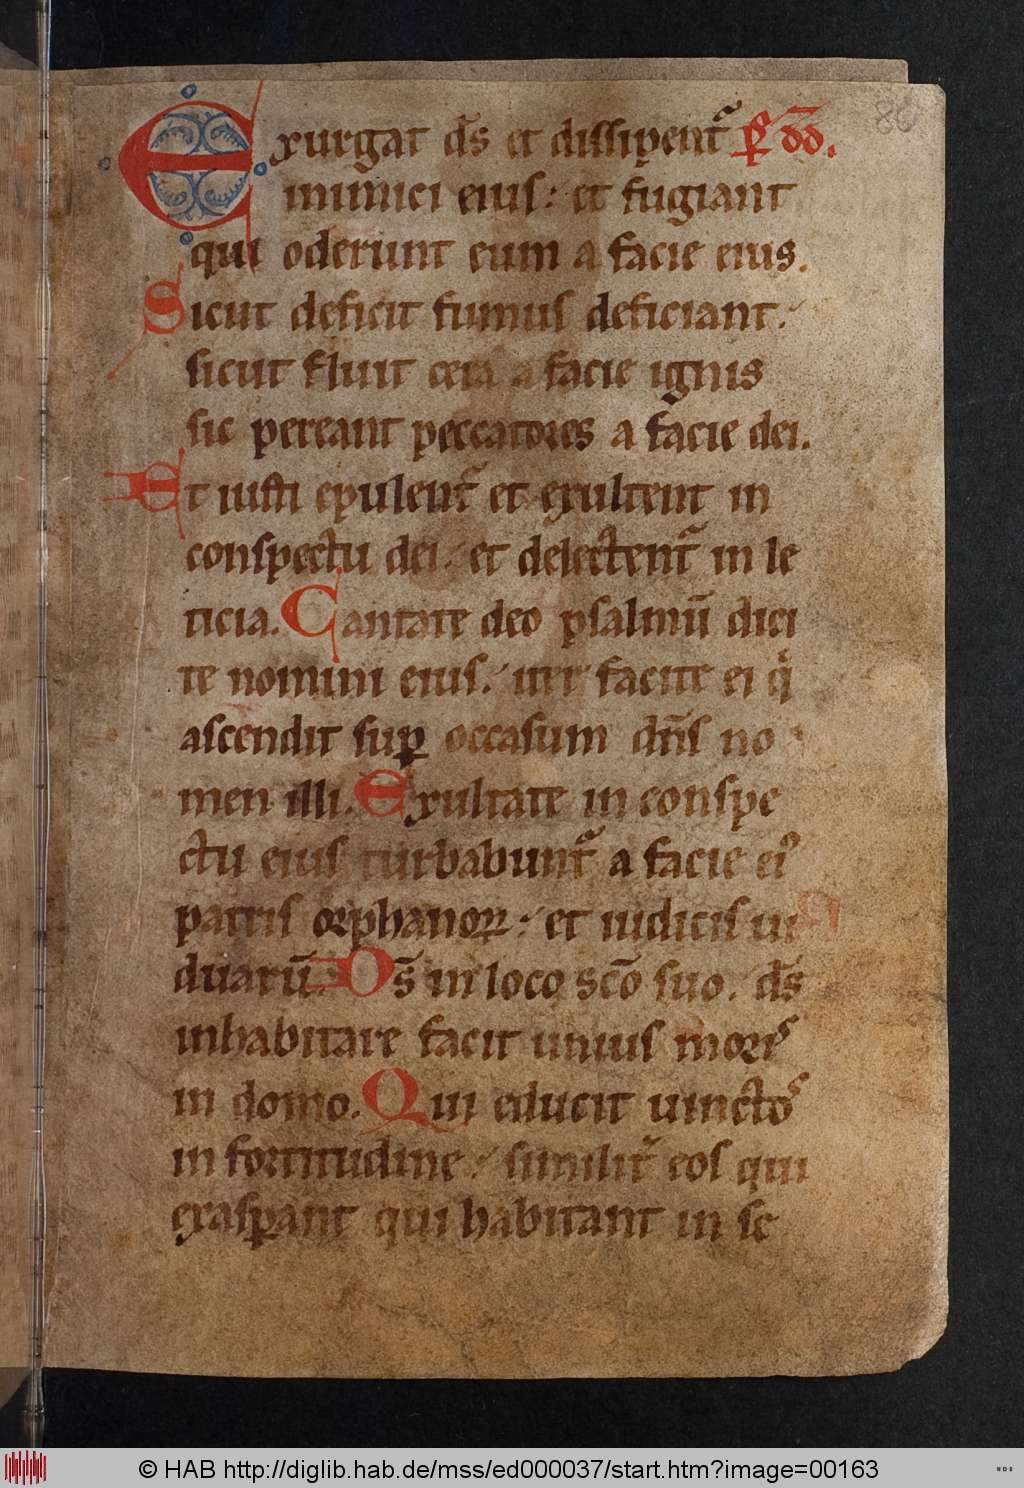 86
Exurgat ds̄ et dissipent᷑ Ps̄ dd̄.
inimici eius: et fugiant
qui oderunt eum a facie eius.
Sicut deficit fumus deficiant.
sicut fluit cera a facie ignis
sic pereant peccatores a facie dei.
Et iusti epulent᷑ et exultent in
conspectu dei. et delectent᷑ in le
ticia. Cantate deo psalmū dici
te nomini eius. iter facite ei qͥ
ascendit suꝑ occasum dn̄s no
men illi. Exultate in conspe
ctu eius turbabunt᷑ a facie eiꝰ
patris orphanoꝝ: et iudicis ui
duarū. Ds̄ in loco sc̄o suo. ds̄
inhabitare facit unius moris
in domo. Qui educit uinctos
in fortitudine. similit᷑ eos qui
exasꝑant qui habitant in se
© HAB http://diglib.hab.de/mss/ed000037/start.htm?image=00163